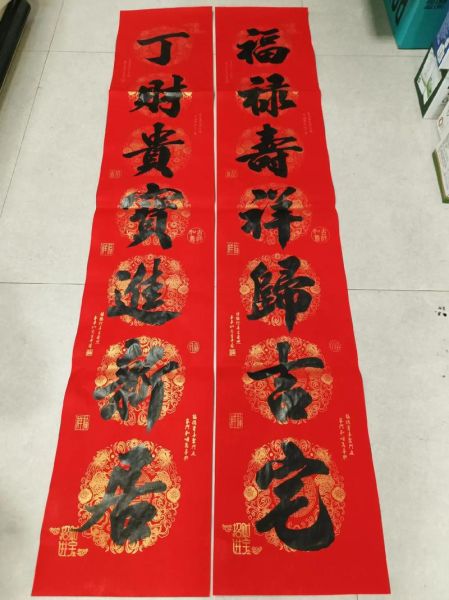 福祿壽祥歸吉宅
丁財貴寶進新居